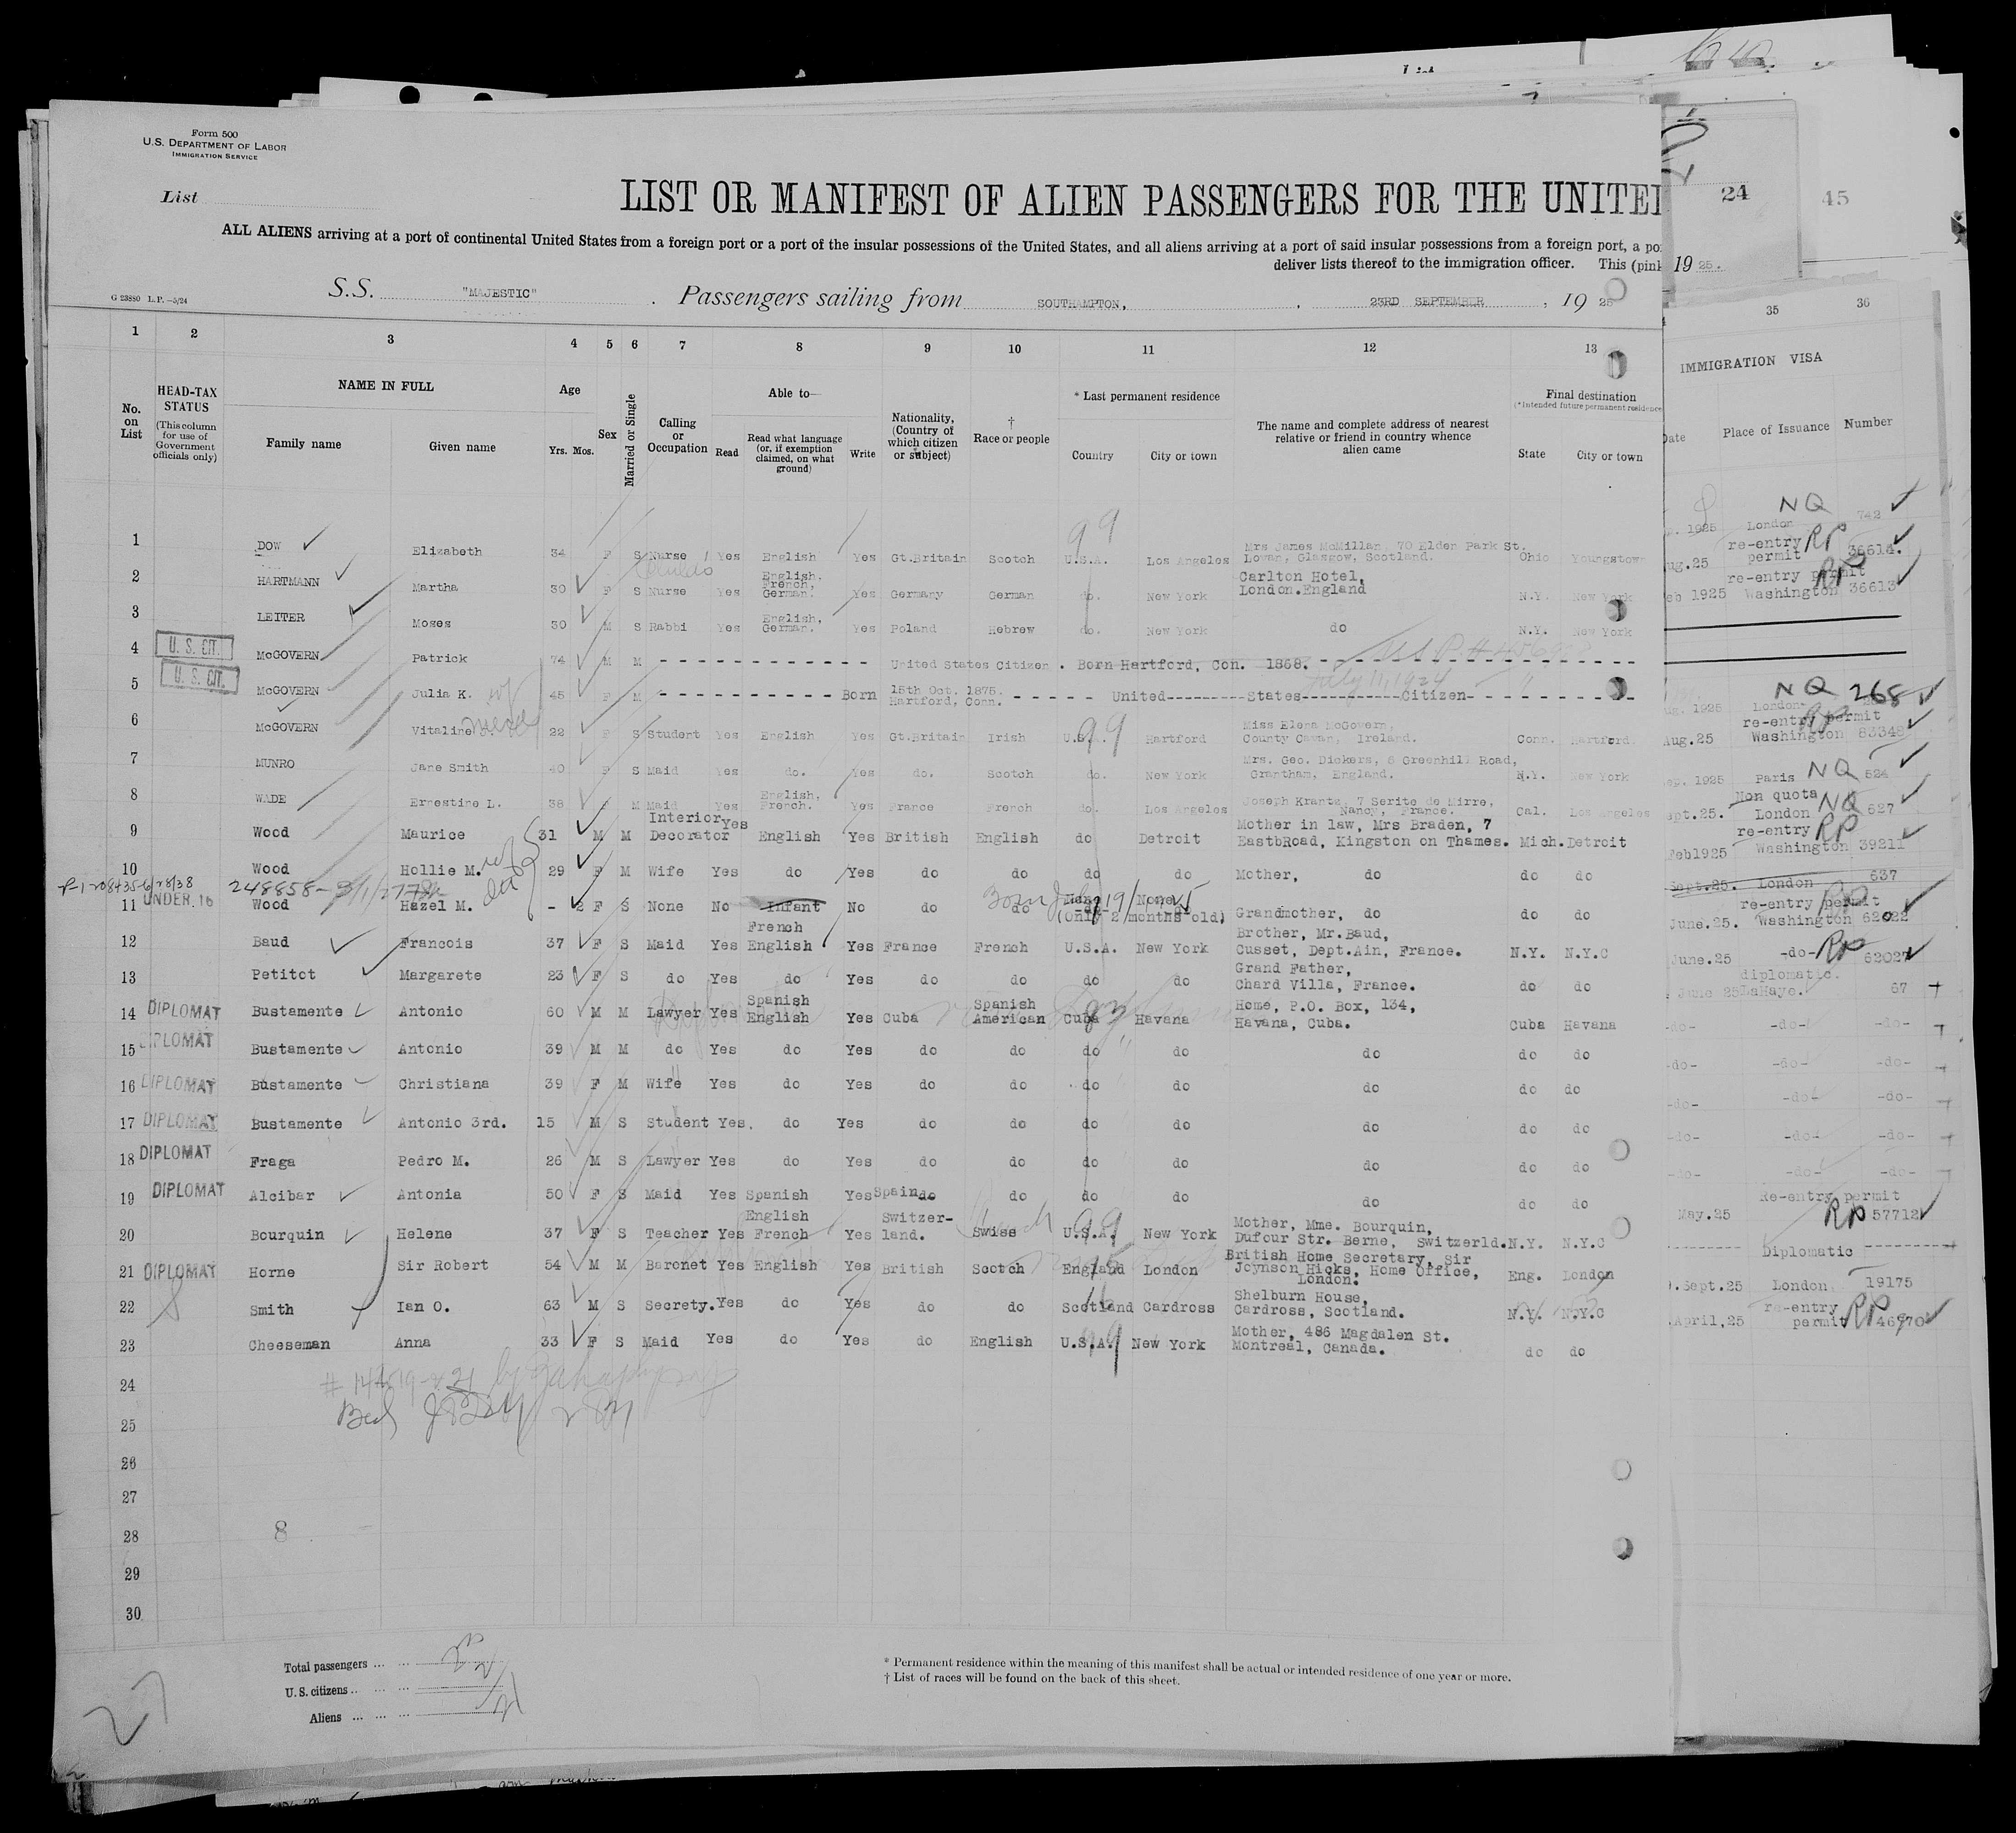 Form 500
U.S. DEPARTMENT OF LABOR
IMMIGRATION SERVICE
List
LIST OR MANIFEST OF ALIEN PASSENGERS FOR THE UNITE
ALL ALIENS arriving at a port of continental United States from a foreign port or a port of the insular possessions of the United States, and all aliens arriving at a port of said insular possessions from a foreign port, a po
deliver lists thereof to the immigration officer. This (pink
24
45
19 25.
G 23880 L.P.—5/24
S.S. "MAJESTIC" . Passengers sailing from SOUTHAMPTON, . 23RD SEPTEMBER , 19 25
1 2 3 4 5 6 7 8 9 10 11 12 13 35 36
No. on List
HEAD-TAX STATUS (This column for use of Government officials only)
NAME IN FULL
Family name Given name
Age
Yrs. Mos.
Sex
Married or Single
Calling or Occupation
Able to—
Read
Read what language (or, if exemption claimed, on what ground)
Write
Nationality, (Country of which citizen or subject)
† Race or people
* Last permanent residence
Country City or town
The name and complete address of nearest relative or friend in country whence alien came
Final destination
(*Intended future permanent residence
State City or town
IMMIGRATION VISA
Date Place of Issuance Number
1 DOW Elizabeth 34 F S Nurse Yes English Yes Gt.Britain Scotch U.S.A. 99 Los Angeles Mrs James McMillan, 70 Elder Park St. Lovan, Glasgow, Scotland. Ohio Youngstow
2 HARTMANN Martha 30 F S Nurse Yes English. French, German. Yes Germany German do. New York Carlton Hotel, London.England N.Y. New York
3 LEITER Moses 30 M S Rabbi Yes English, German. Yes Poland Hebrew do. New York do N.Y. New York
4 U. S. CIT. McGOVERN Patrick 74 M M United States Citizen . Born Hartford, Con. 1868.
July 11, 1924
5 U. S. CIT. McGOVERN Julia K. wf 45 F M Born 15th Oct. 1875. Hartford, Conn. United States Citizen
6 McGOVERN Vitaline niece 22 F S Student Yes English Yes Gt.Britain Irish U.S. 99 Hartford Miss Elena McGovern, County Cavan, Ireland. Conn. Hartford.
7 MUNRO Jane Smith 40 F S Maid Yes do. Yes do. Scotch do. New York Mrs. Geo. Dickers, 8 Greenhill Road, Grantham, England. N.Y. New York
8 WADE Ernestine L. 38 F M Maid Yes English, French. Yes France French do. Los Angeles Joseph Krantz, 7 Serite de Mirre, Nancy, France. Cal. Los Angeles
9 Wood Maurice 31 M M Interior Decorator Yes English Yes British English do Detroit Mother in law, Mrs Braden, 7 EastbRoad, Kingston on Thames. Mich. Detroit
10 Wood Hollie M. wf 29 F M Wife Yes do Yes do do do do Mother, do do do
248858-
11 UNDER 16 Wood Hazel M. - 2 F S None No Infant No do do Born July 19/25 None (Only 2 months old) Grandmother, do do do
12 Baud Francois 37 F S Maid Yes French English Yes France French U.S.A. New York Brother, Mr.Baud, Cusset, Dept.Ain, France. N.Y. N.Y.C
13 Petitot Margarete 23 F S do Yes do Yes do do do do Grand Father, Chard Villa, France. do do
14 DIPLOMAT Bustamente Antonio 60 M M Lawyer Yes Spanish English Yes Cuba Spanish American Cuba Havana Home, P.O. Box, 134, Havana, Cuba. Cuba Havana
15 DIPLOMAT Bustamente Antonio 39 M M do Yes do Yes do do do do do do do
16 DIPLOMAT Bustamente Christiana 39 F M Wife Yes do Yes do do do do do do do
17 DIPLOMAT Bustamente Antonio 3rd. 15 M S Student Yes. do Yes do do do do do do do
18 DIPLOMAT Fraga Pedro M. 26 M S Lawyer Yes do Yes do do do do do do do
19 DIPLOMAT Alcibar Antonia 50 F S Maid Yes Spanish Yes Spain do do do do do do do
20 Bourquin Helene 37 F S Teacher Yes English French Yes Switzer-land. Swiss U.S.A. 99 New York Mother, Mme. Bourquin, Dufour Str. Berne, Switzerld. N.Y. N.Y.C
21 DIPLOMAT Horne Sir Robert 54 M M Baronet Yes English Yes British Scotch England London British Home Secretary, Sir Joynson Hicks, Home Office, London. Eng. London
22 Smith Ian O. 63 M S Secrety. Yes do Yes do do Scotland Cardross Shelburn House, Cardross, Scotland. N.Y. N.Y.C
23 Cheeseman Anna 33 F S Maid Yes do Yes do English U.S.A. 99 New York Mother, 486 Magdalen St. Montreal, Canada. do do
24
25
26
27
28 8
29
30
p. 1925 London NQ 742
ug.25 re-entry permit RP 36614.
eb 1925 re-entry permit Washington RP 36613
ug. 1925 London NQ 268
Aug.25 re-entry permit Washington RP 83348
ep. 1925 Paris NQ 524
pt.25. Non quota London NQ 627
Feb1925 re-entry Washington RP 39211
Sept.25. London 637
June.25. re-entry permit Washington RP 62022
June.25 -do- RP 62027
June 25 diplomatic. LaHaye. 67
-do- -do- -do-
-do- -do- -do-
-do- -do- -do-
-do- -do- -do-
-do- -do- -do-
May.25 Re-entry permit RP 57712
Diplomatic
.Sept.25 London 19175
.April,25 re-entry permit RP 46970
Total passengers ... ...
U. S. citizens .. ... ...
Aliens ... ... ...
27
* Permanent residence within the meaning of this manifest shall be actual or intended residence of one year or more.
† List of races will be found on the back of this sheet.